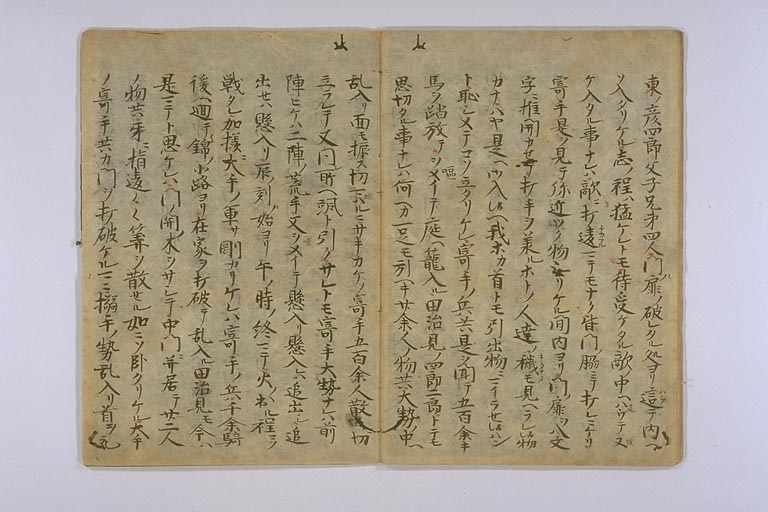 東ノ彦四郎父子兄弟四人門ノ扉ノ破レタル処ヨリ這テ内ヘ
ソ入タリケル志ノ程ハ猛ケレトモ待受ケタル敵ノ中ヘハウテ又
ケ入タル事ナレハ敵ニ打違ニテモナク皆門ノ脇ニテ打レニケリ
寄手是ヲ見テ弥近ツク物モナカリケル間内ヨリ門ノ扉ヲ八文
字ニ推開カセ打手ヲ承ルホトノ人達ノ穢モ見ヘラレ物
カナハヤ是ヘ御入レヘ我ホカ首トモ引出物ニマイラセ ハン
ト恥シメテソ立タリケレ寄手ノ兵共是ヲ聞テ五百余キ
馬ヲ踏放テヲメイテ庭ヘ籠入ル田治見ノ四郎二郎トテモ
思切タル事ナレハ何ヘカ一足モ引ヘキ廿余人ノ物共大勢ノ中ヘ
乱入リ面モ振ス切テ ルニサキカケノ寄手五百余人散々ニ切
立ラレテ又門ノ所ヘ颯ト引ノサレトモ寄手大勢ナレハ前
陣ヒケハ二陣ノ荒手又ヲメイテ懸入リ懸入ハ追出シ追
出セハ懸入リ辰刻ノ始ヨリ午ノ時ノ終ニテ火出ル程ニソ
戦タル加様ニ大手ノ軍サ剛カリケレハ寄手ノ兵千余騎
後ヘ廻テ錦ノ小路ヨリ在家ヲ打破テ乱入ル田治見モ今ハ
是ニテト思ケレハ門ノ開木ヲサシテ中門ニ並居テ廿二人
ノ物共互ニ指違々々算ヲ散セル如ニソ臥タリケル大手
ノ寄手共カ門ヲ打破ケル ニ搦手ノ勢乱入リ首ヲ